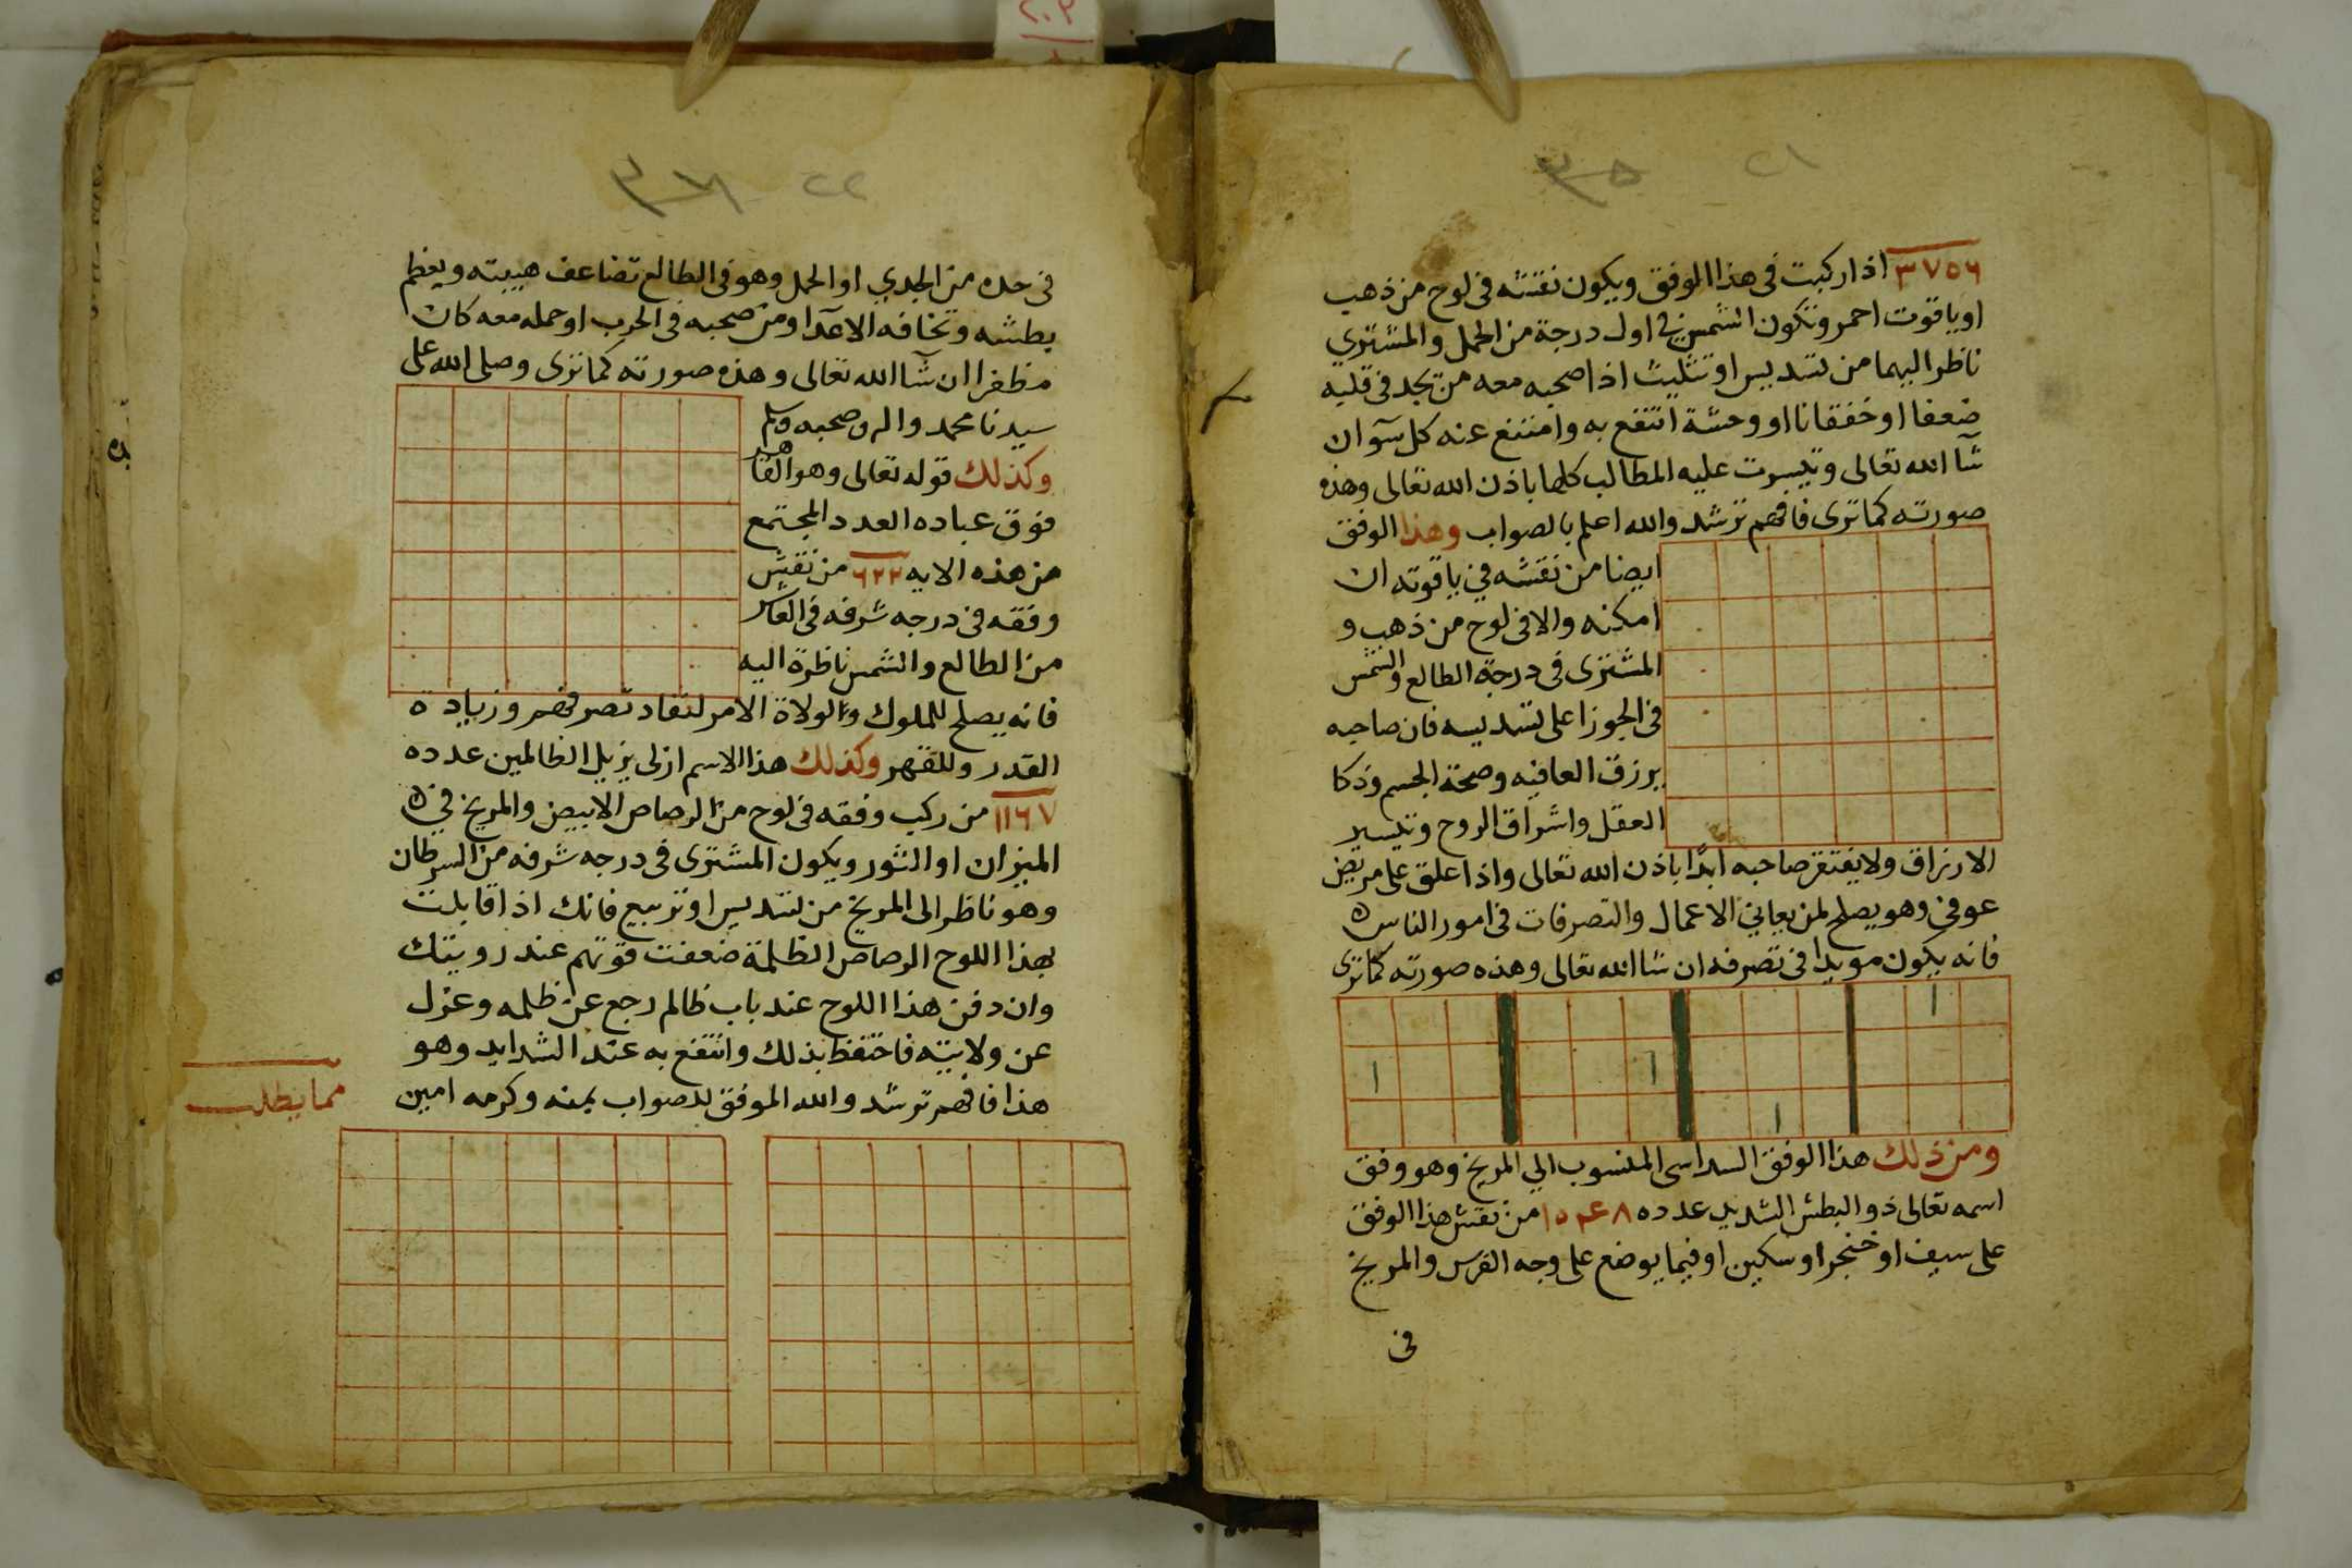 ٢١ ٣٥
٣٧٥٦ اذا ركبت فى هذا الموفق ويكون نقشه فى لوح من ذهب
او ياقوت احمر وتكون الشمس فى اول درجة من الحمل والمشتري
ناظر اليهما من تسديس او تثليث اذا صحبه معه من يجد فى قلبه
ضعفا او خفقانا او وحشة انتفع به وامتنع عنه كل سوء ان
شآ الله تعالى وتيسرت عليه المطالب كلها باذن الله تعالى وهذه
صورته كما ترى فافهم ترشد والله اعلم بالصواب وهذا الوفق
ايضا من نقشه في ياقوته ان
امكنه والا فى لوح من ذهب و
المشترى فى درجة الطالع والشمس
فى الجوزا على تسديسه فان صاحبه
يرزق العافيه وصحة الجسم وذكا
العقل واشراق الروح وتيسير
الارزاق ولا يفتقر صاحبه ابدًا باذن الله تعالى واذا علق على مريض
عوفى وهو يصلح لمن يعاني الاعمال والتصرفات فى امور الناس
فانه يكون مويدا فى تصرفه ان شا الله تعالى وهذه صورته كما ترى
ا
ا ا
ا
ومن ذلك هذا الوفق السداسى المنسوب الي المريخ وهو وفق
اسمه تعالى ذو البطش الشديد عدده ١٥٣٤٨ من نقش هذا الوفق
على سيف او خنجر او سكين او فيما يوضع على وجه الفرس والمريخ
فى
٢٢ ٣٧
فى حده من الجدي او الحمل وهو فى الطالع تضاعف هيبته ويعظم
بطشه وتخافه الاعدآ ومن صحبه فى الحرب او حمله معه كان
مظفرا ان شآ الله تعالى وهذه صورته كما ترى وصلى الله على
سيدنا محمد واله وصحبه وسلم
وكذلك قوله تعالى وهو القاهر
فوق عباده العدد المجتمع
من هذه الايه ٦٢٢ من نقش
وفقه فى درجه شرفه فى العاشر
من الطالع والشمس ناظرة اليه
فانه يصلح للملوك والولاة الامر لنفاد تصرفهم وزيادة
القدر وللقهر وكذلك هذا الاسم ازلى يزيل الظالمين عدده
١١٦٧ من ركب وفقه فى لوح من الرصاص الابيض والمريخ في
الميزان او الثور ويكون المشترى فى درجه شرفه من السرطان
وهو ناظر الى المريخ من تسديس او تربيع فانك اذا قابلت
بهذا اللوح الرصاص الظلمة ضعفت قوتهم عند رويتك
وان دفن هذا اللوح عند باب ظالم رجع عن ظلمه وعزل
عن ولايته فاحتفظ بذلك وانتفع به عند الشدايد وهو
هذا فافهم ترشد والله الموفق للصواب بمنه وكرمه امين
مما يطلب